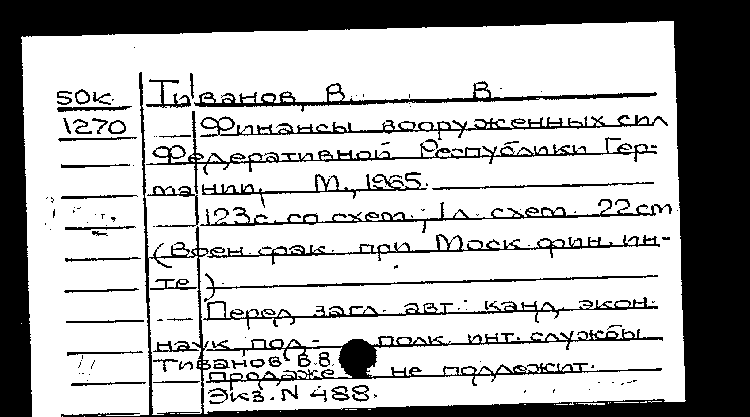 50к Тиванов, В. В.
1270 Финансы вооруженных сил
Федеративной Республики Гер-
мании, М., 1965.
123с. со схем.; 1л. схем. 22см
(Воен. фак. при Моск. фин. ин-
те)
Перед загл. авт.: канд. экон.
наук, под-полк. инт. службы
Тиванов В.В.
продаже не подлежит.
Экз. N 488.